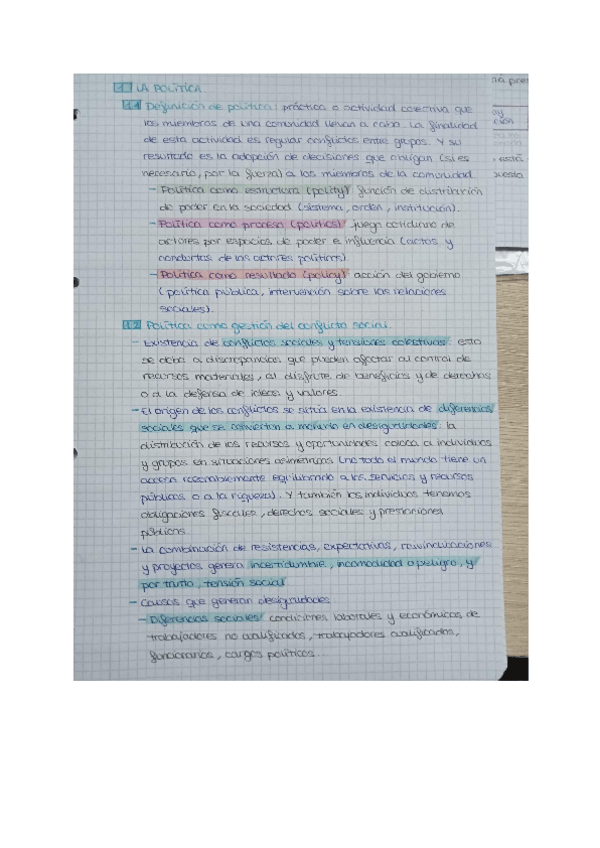 1 LA POLÍTICA.
1.1 Definición de política: práctica o actividad colectiva que
los miembros de una comunidad llevan a cabo. La finalidad
de esta actividad es regular conflictos entre grupos. Y su
resultado es la adopción de decisiones que obligan (si es
necesario, por la fuerza) a los miembros de la comunidad.
- Política como estructura (polity): función de distribución
de poder en la sociedad (sistema, orden, institución).
- Política como proceso (politics): juego cotidiano de
actores por espacios de poder e influencia (actos y
conductas de los actores políticos)
- Política como resultado (policy): acción del gobierno
(política pública, intervención sobre las relaciones
sociales).
1.2 Política como gestión del conflicto social.
- Existencia de conflictos sociales y tensiones colectivas: esto
se debe a discrepancias que pueden afectar al control de
recursos materiales, al disfrute de beneficios y de derechos
o a la defensa de ideas y valores.
- El origen de los conflictos se sitúa en la existencia de diferencias
sociales que se convierten a menudo en desigualdades: la
distribución de los recursos y oportunidades coloca a individuos
y grupos en situaciones asimétricas (no todo el mundo tiene un
acceso razonablemente equilibrado a los servicios y recursos
públicos o a la riqueza). Y también los individuos tenemos
obligaciones fiscales, derechos sociales y prestaciones
públicas.
- La combinación de resistencias, expectativas, reivindicaciones
y proyectos genera incertidumbre, incomodidad o peligro, y
por tanto, tensión social.
- Causas que generan desigualdades
- Diferencias sociales: condiciones laborales y económicas de
trabajadores no cualificados, trabajadores cualificados,
funcionarios, cargos políticos...
está